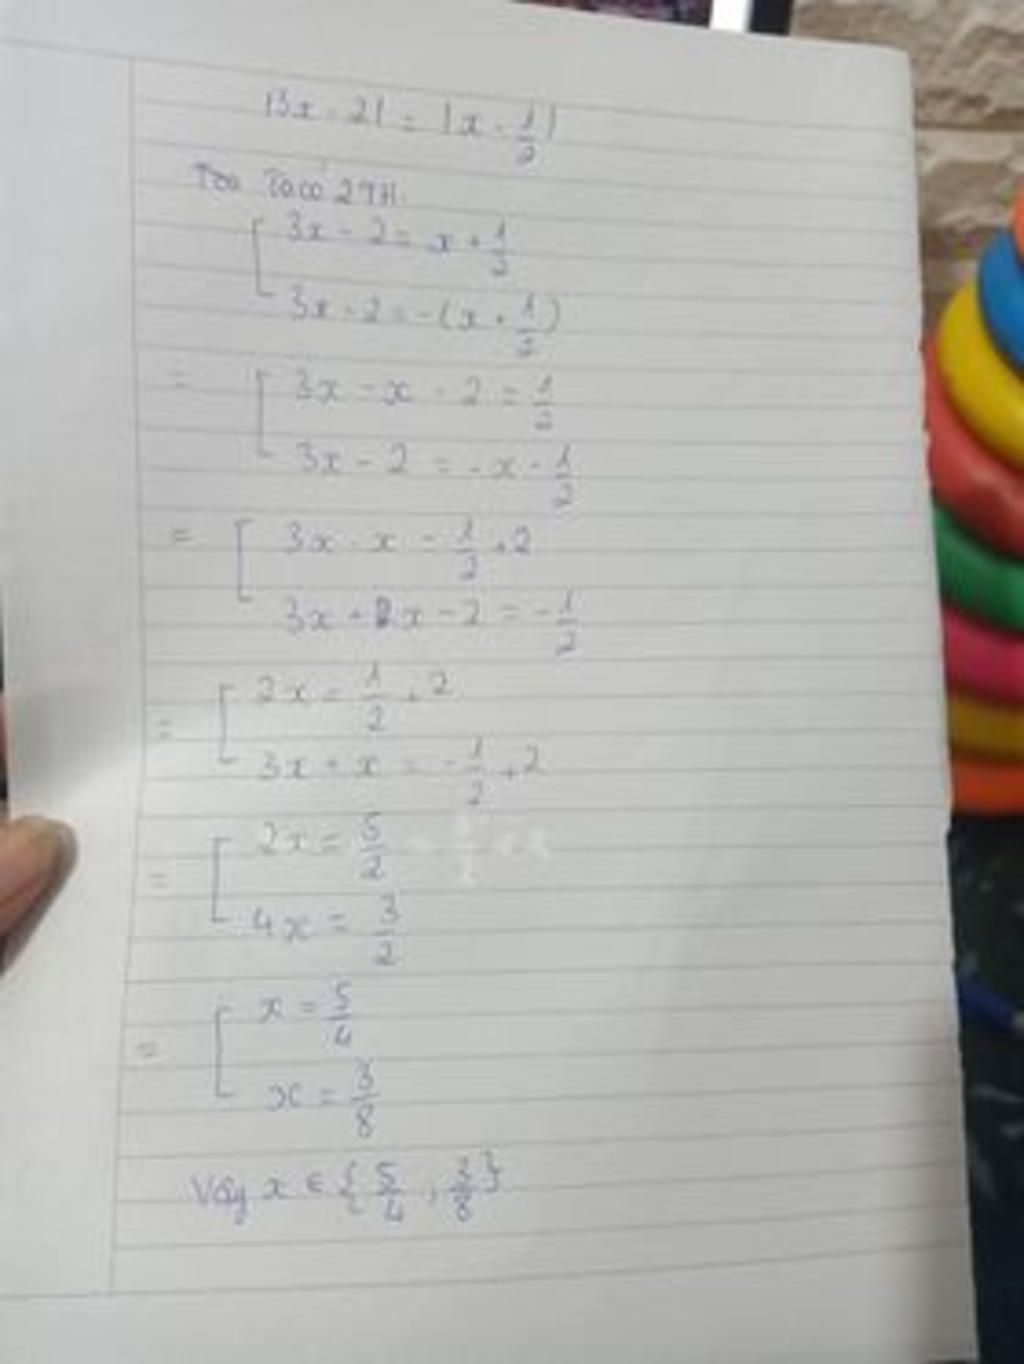 |3x - 2| = |x - 1/2|
Taco 2TH.
3x - 2 = x + 1/2
3x - 2 = -(x + 1/2)
= 3x - x - 2 = 1/2
3x - 2 = -x - 1/2
= 3x - x = 1/2 + 2
3x + x - 2 = -1/2
= 2x = 1/2 + 2
3x + x = -1/2 + 2
= 2x = 5/2
4x = 3/2
= x = 5/4
x = 3/8
Vậy x ∈ {5/4, 3/8}